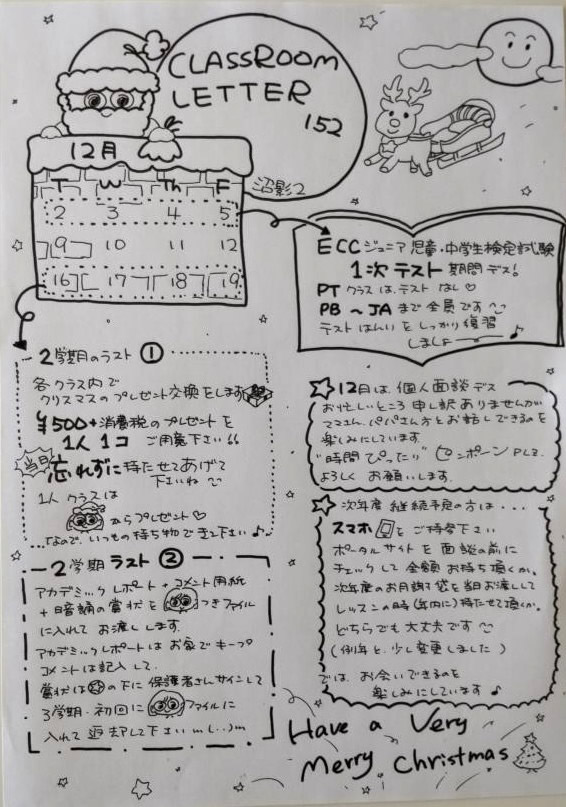 CLASSROOM
LETTER
152
沼影2
12月
T W Th F
2 3 4 5
9 10 11 12
16 17 18 19
ECCジュニア 児童・中学生検定試験
1次テスト 期間デス!
PTクラスは、テストなし♡
PB〜JAまで全員です
テストはんいをしっかり復習
しましょー♪
2学期のラスト①
各クラス内で
クリスマスのプレゼント交換をします
¥500+消費税のプレゼントを
1人1コ ご用意下さい!!
当日
忘れずに持たせてあげて
下さいね
1人クラスは
からプレゼント♡
なので、いつもの持ち物でき下さい♪
2学期ラスト②
アカデミックレポート+コメント用紙
+暗誦の賞状を つきファイル
に入れてお渡しします。
アカデミックレポートはお家でキープ
コメントは記入して、
賞状は☆の下に保護者さんサインして
3学期・初回に ファイルに
入れて返却して下さいm(..)m
☆12月は、個人面談デス
お忙しいところ申し訳ありませんが
ママさん、パパさん方とお話しできるのを
楽しみにしています。
"時間ぴったり"ピンポーンPLZ.
よろしくお願いします。
☆次年度継続予定の方は...
スマホ をご持参下さい
ポータルサイトを面談の前に
チェックして金額お持ち頂くか、
次年度のお月謝袋を当日お渡しして
レッスンの時(年内に)持たせて頂くか。
どちらでも大丈夫です
(例年と、少し変更しました)
では、お会いできるのを
楽しみにしています♪
Have a Very
Merry Christmas